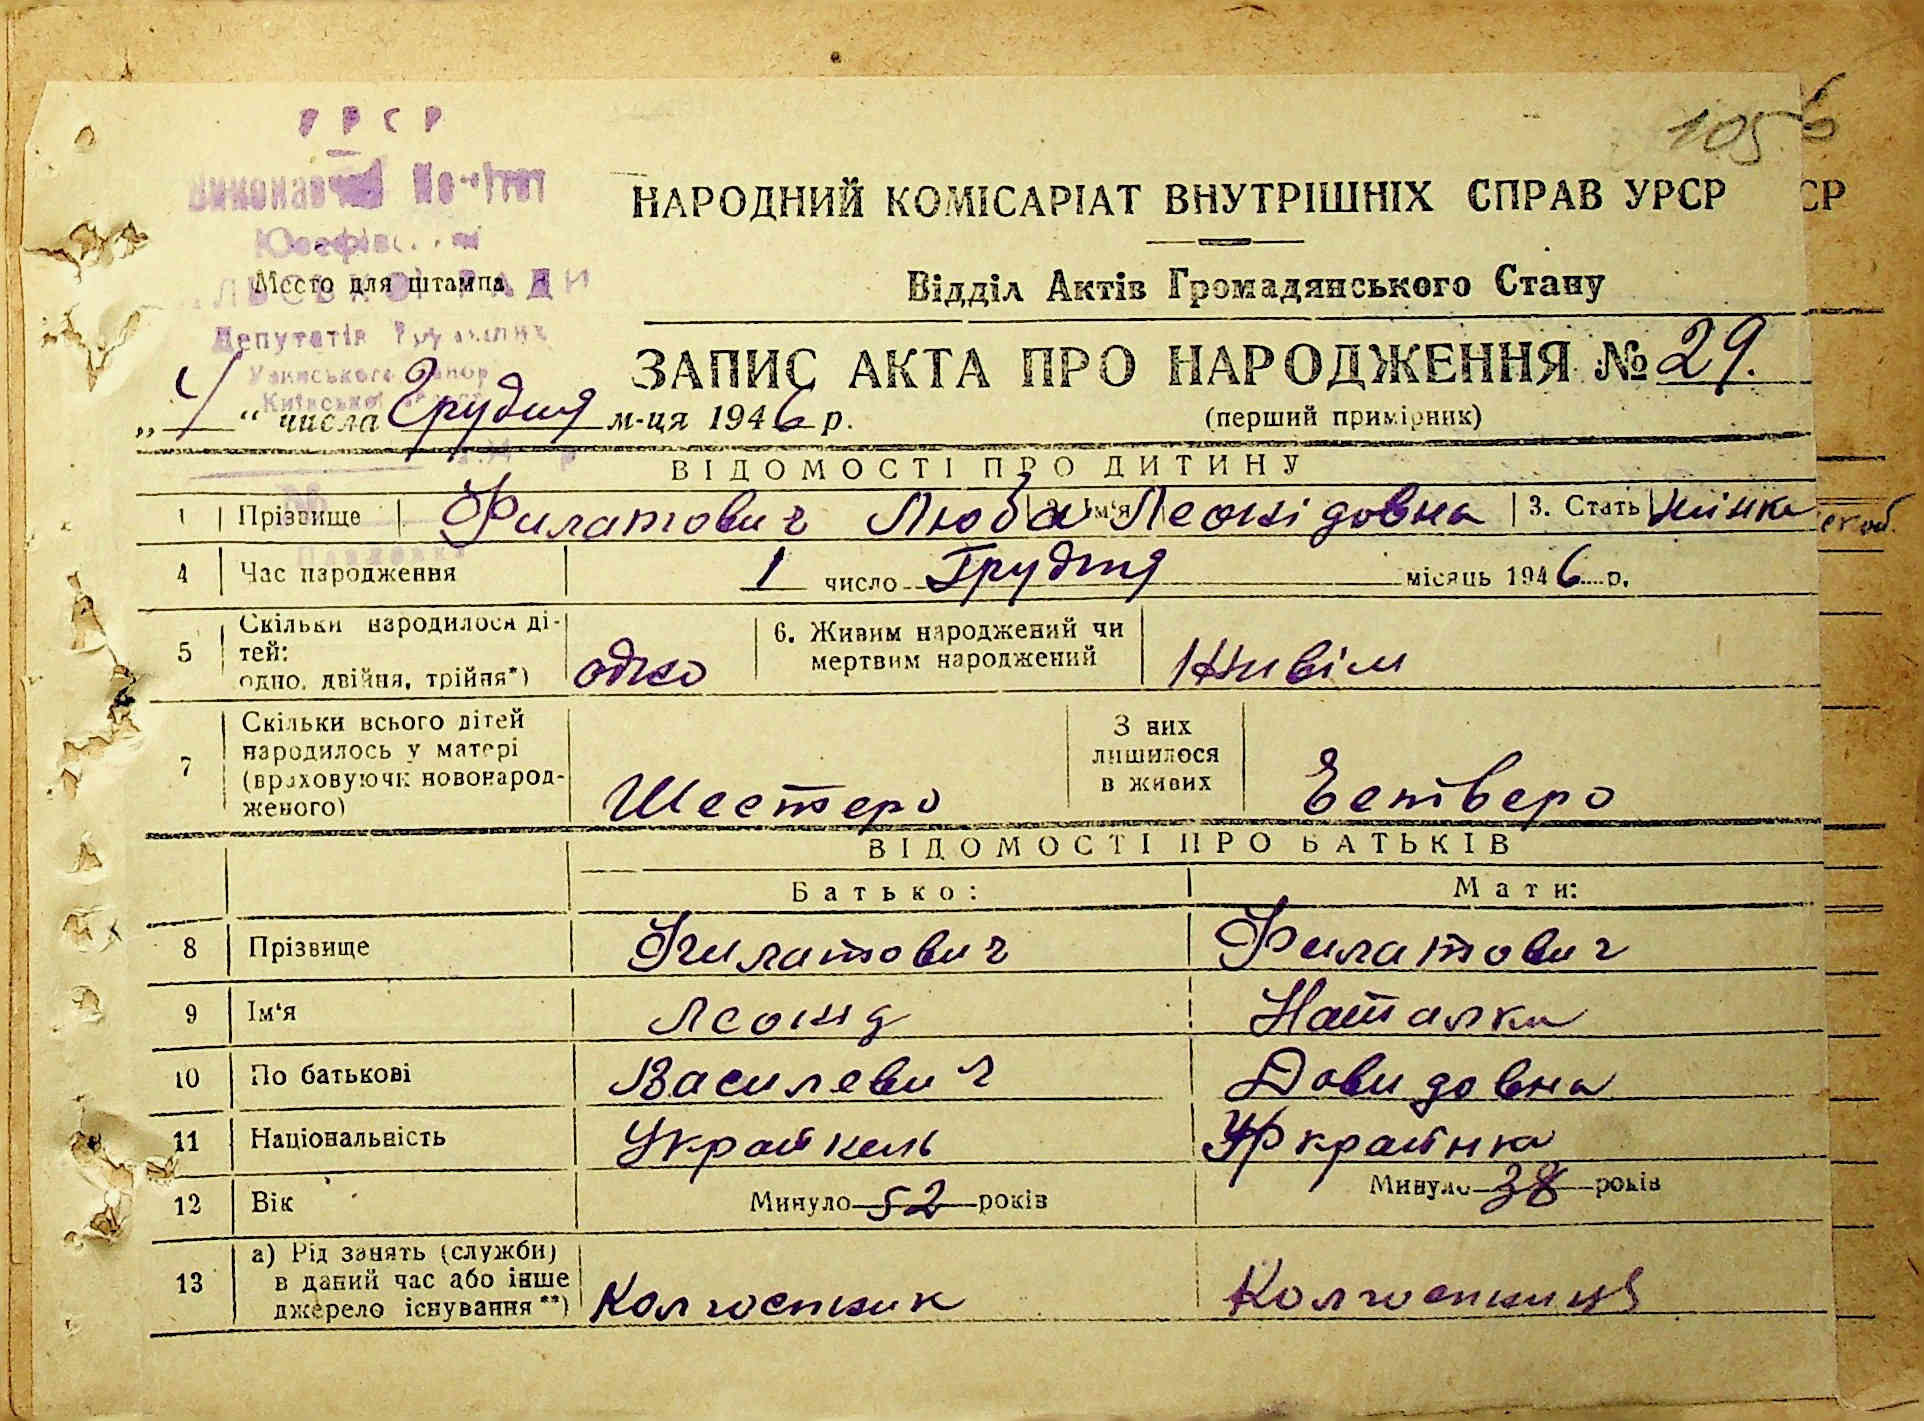 УРСР
105
6
НАРОДНИЙ КОМІСАРІАТ ВНУТРІШНІХ СПРАВ УРСР
СР
Место для штампа
Депутатів
Відділ Актів Громадянського Стану
ЗАПИС АКТА ПРО НАРОДЖЕННЯ № 29.
(перший примірник)
„4“ числа Грудня м-ця 1946 р.
ВІДОМОСТІ ПРО ДИТИНУ
1 Прізвище Филатович 2. Ім'я Люба Леонідовна 3. Стать жінка
4 Час народження 1 число Грудня місяць 1946 р.
5 Скільки народилося ді-
тей:
одно, двійня, трійня*) одно
6. Живим народжений чи
мертвим народжений Живім
7 Скільки всього дітей
народилось у матері
(враховуючи новонарод-
женого) Шестеро
З них
лишилося
в живих Четверо
ВІДОМОСТІ ПРО БАТЬКІВ
Батько: Мати:
8 Прізвище Филатович Филатович
9 Ім'я Леонід Наталка
10 По батькові Василевич Давидовна
11 Національність Українець Українка
12 Вік Минуло 52 років Минуло 38 років
13 а) Рід занять (служби)
в даний час або інше
джерело існування**) Колгоспник Колгоспниця